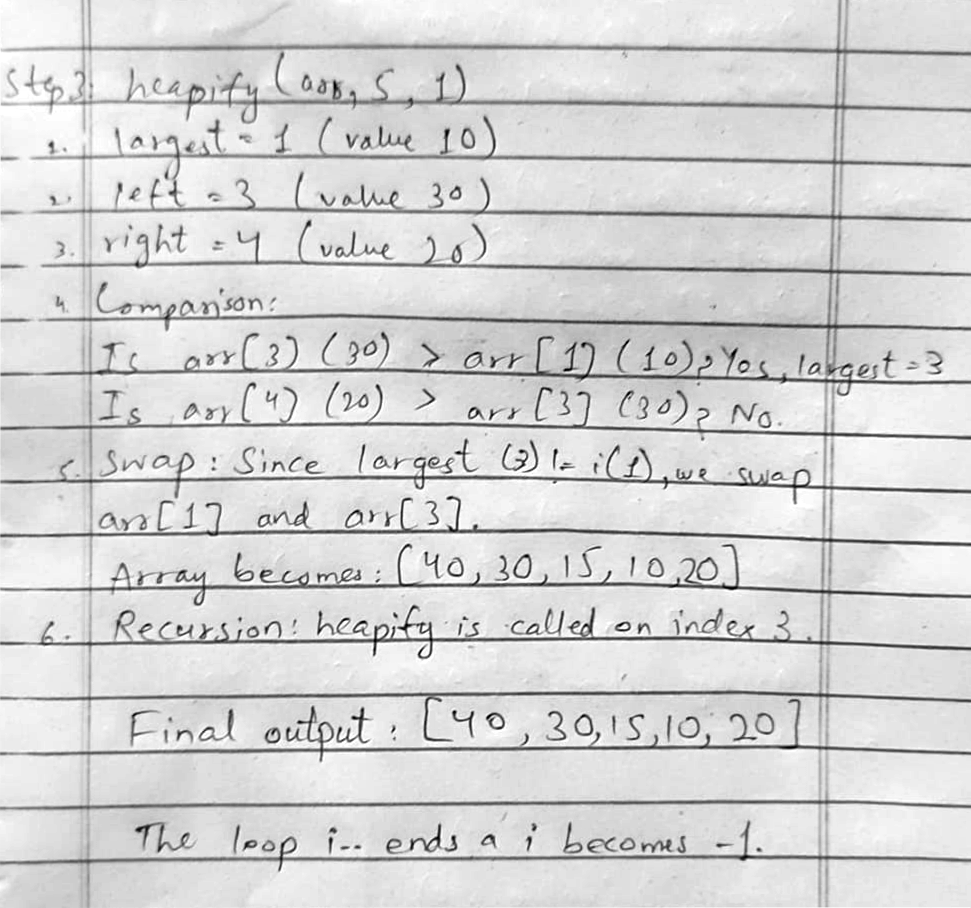 Step 3: heapify (arr, 5, 1)
1. largest = 1 (value 10)
2. left = 3 (value 30)
3. right = 4 (value 20)
4. Comparison:
Is arr[3] (30) > arr[1] (10)? Yes, largest = 3
Is arr[4] (20) > arr[3] (30)? No.
5. Swap: Since largest (3) != i(1), we swap
arr[1] and arr[3].
Array becomes: [40, 30, 15, 10, 20]
6. Recursion: heapify is called on index 3.
Final output: [40, 30, 15, 10, 20]
The loop i-- ends a i becomes -1.